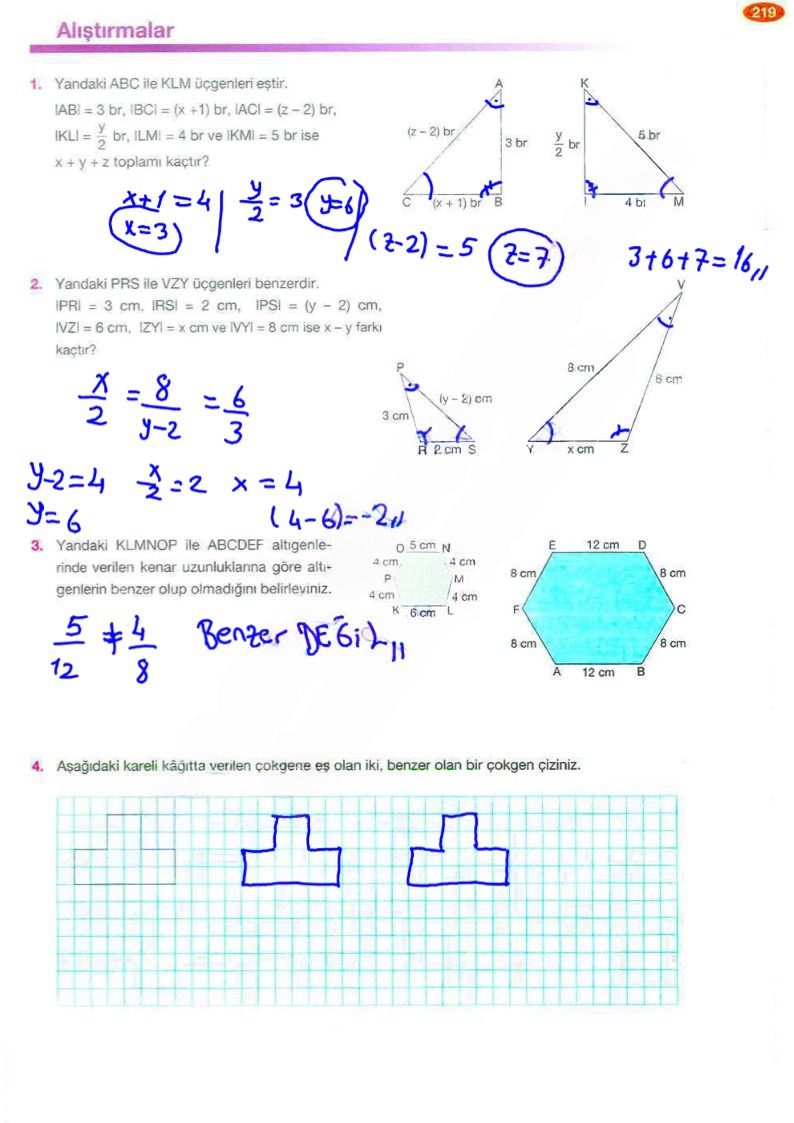 219
Alıştırmalar
1. Yandaki ABC ile KLM üçgenleri eştir.
IABI = 3 br, IBCI = (x +1) br, IACI = (z – 2) br,
IKLI = y/2 br, ILMI = 4 br ve IKMI = 5 br ise
x + y + z toplamı kaçtır?
A
(z – 2) br
3 br
C (x + 1) br B
K
y/2 br
5 br
4 br M
x+1=4
x=3
y/2 = 3 y=6
(z-2) = 5 z=7
3+6+7=16,,
2. Yandaki PRS ile VZY üçgenleri benzerdir.
IPRI = 3 cm, IRSI = 2 cm, IPSI = (y – 2) cm,
IVZI = 6 cm, IZYI = x cm ve IVYI = 8 cm ise x – y farkı
kaçtır?
P
3 cm
(y – 2) cm
R 2 cm S
V
8 cm
6 cm
Y x cm Z
x/2 = 8/y-2 = 6/3
y-2=4 x/2=2 x=4
y=6 (4-6)=-2,,
3. Yandaki KLMNOP ile ABCDEF altıgenle-
rinde verilen kenar uzunluklarına göre altı-
genlerin benzer olup olmadığını belirleyiniz.
O 5 cm N
4 cm 4 cm
P M
4 cm 4 cm
K 6 cm L
E 12 cm D
8 cm 8 cm
F C
8 cm 8 cm
A 12 cm B
5/12 ≠ 4/8 Benzer DEĞİL,,
4. Aşağıdaki kareli kâğıtta verilen çokgene eş olan iki, benzer olan bir çokgen çiziniz.